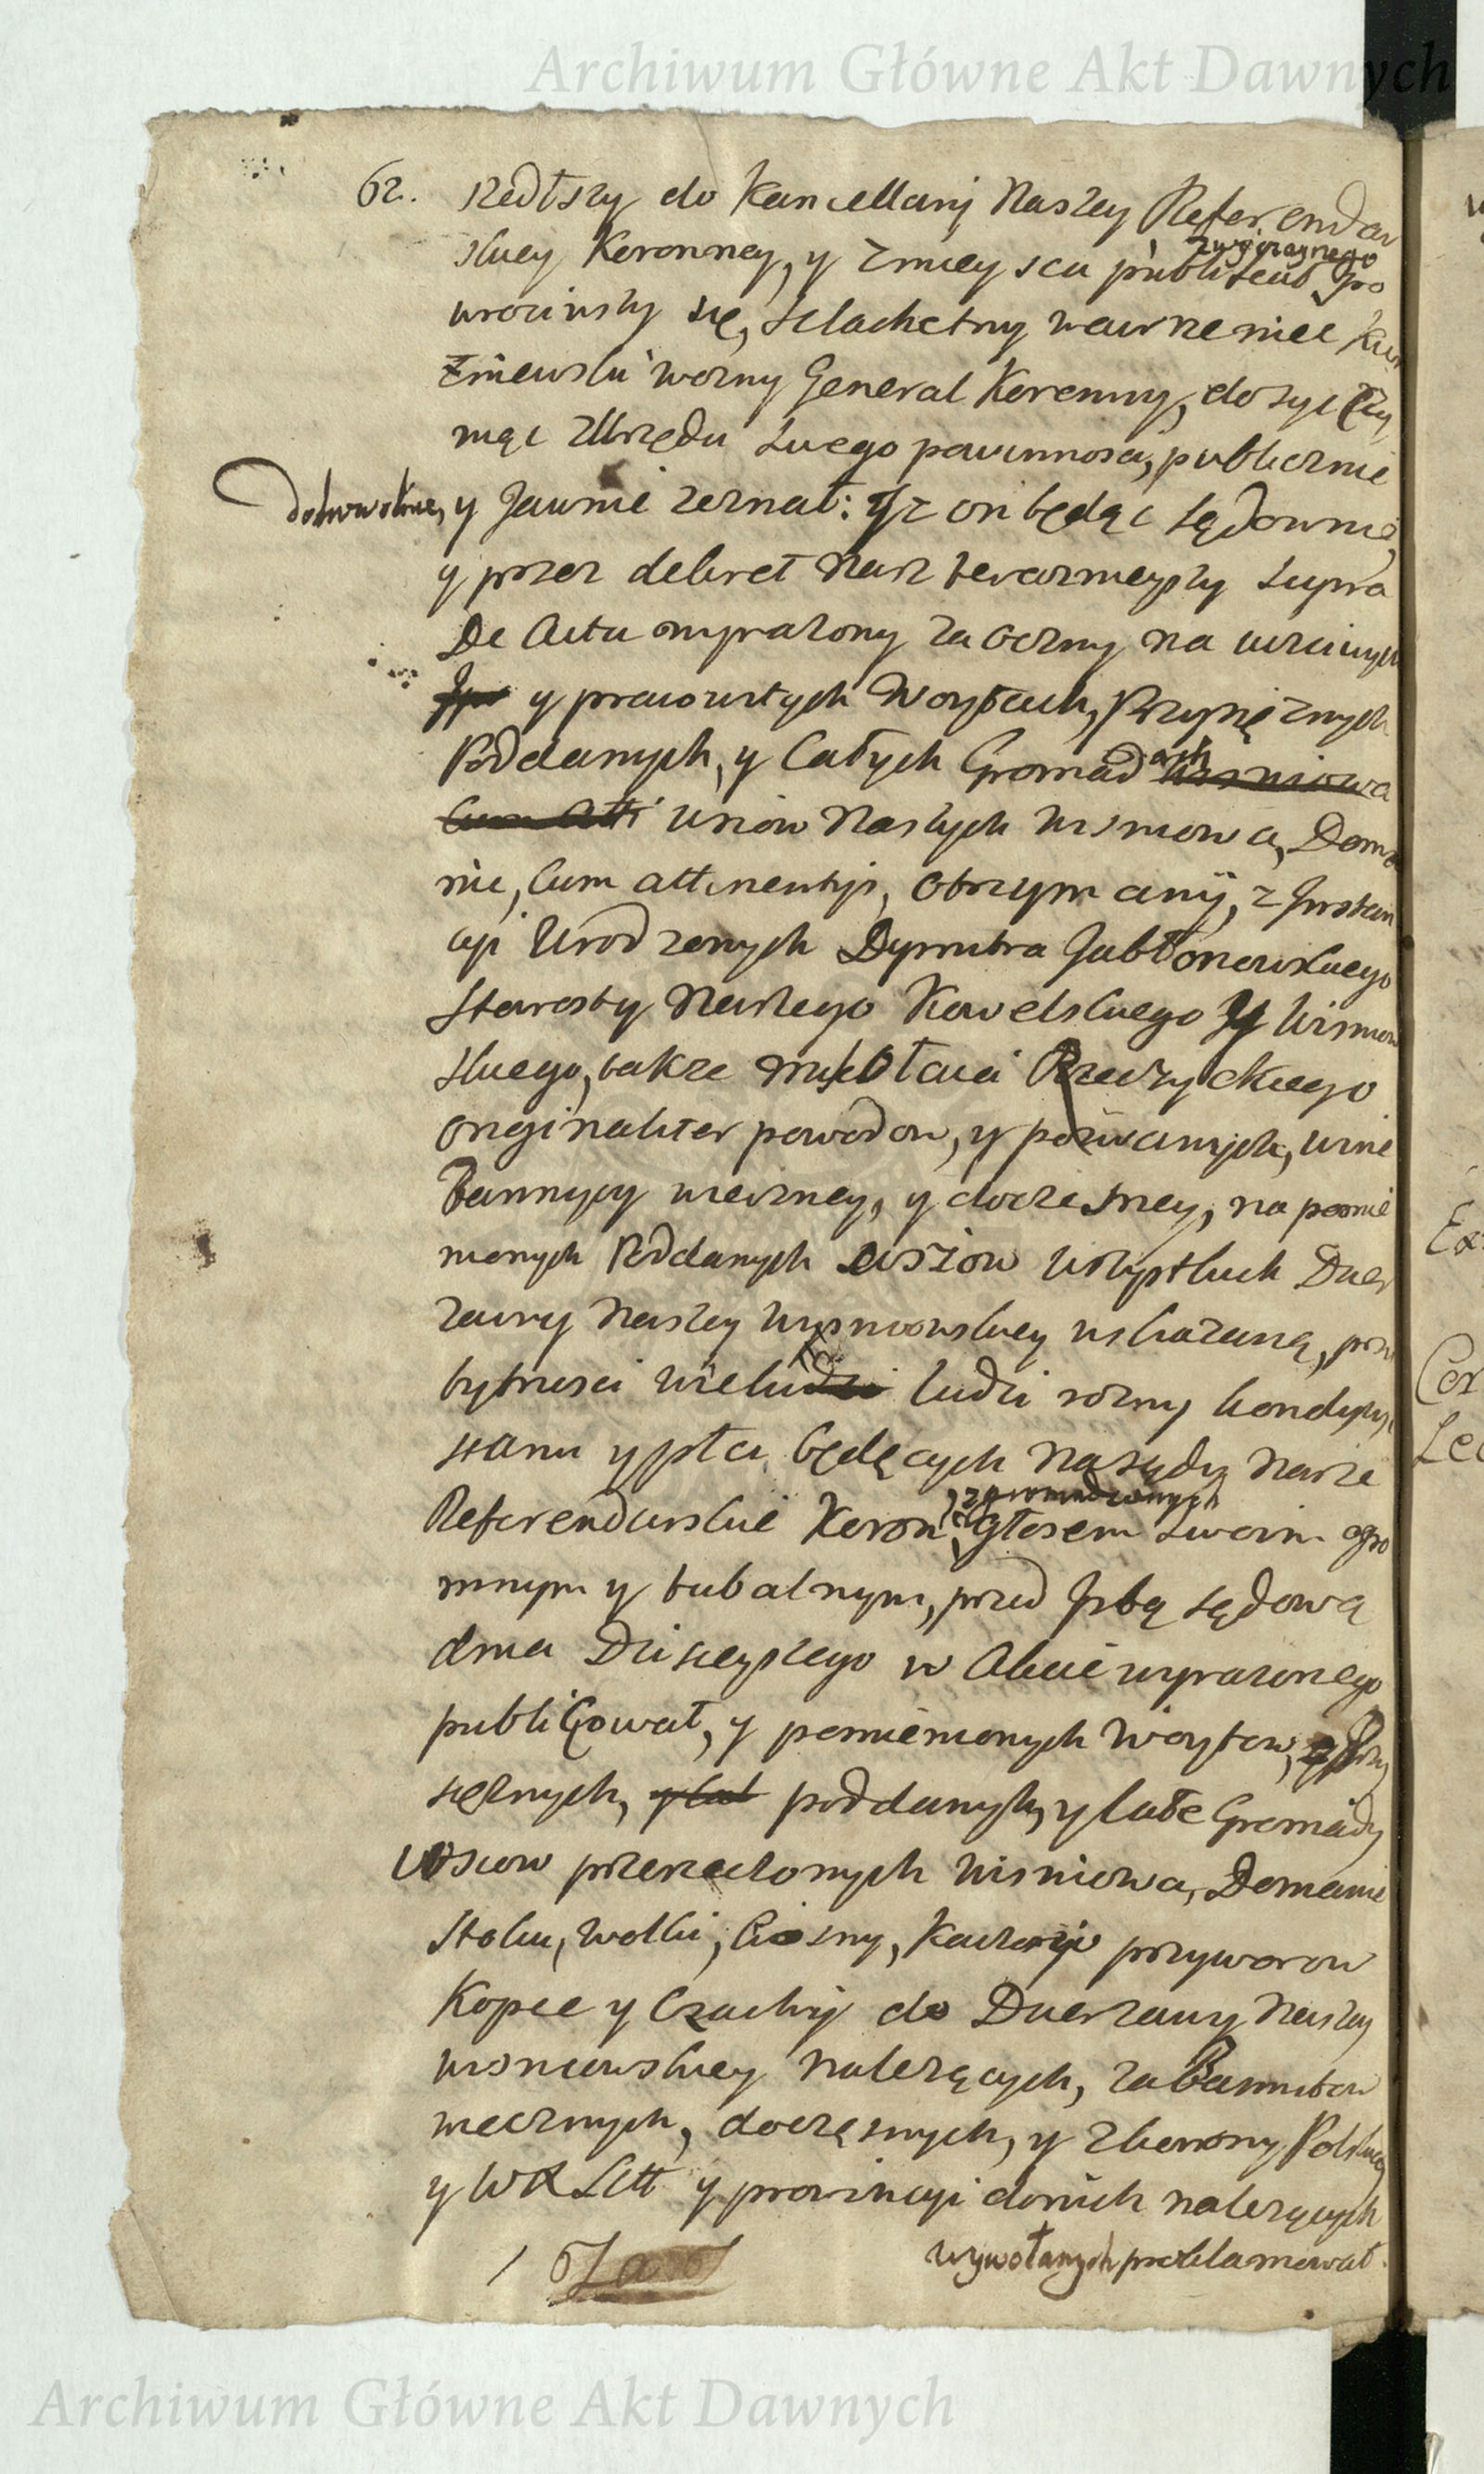 Archiwum Główne Akt Dawnych
62. szedłszy do Kancellarij Naszey Referendar
skiey Koronney, y z mieysca publikat zwyczaynego po
wrociwszy się, szlachetny Wawrzeniec
Woźny Generał Koronny, dosyć czy
niąc Urzędu swego powinności, publicznie
dobrowolnie, y jawnie zeznał: Iż on będąc sądownie,
y przez dekret Nasz teraznieyszy supra
De Actu wyrazony zaoczny na
y pracowitych Woytach, Przysiężnych
Poddanych, y całych Gromadach Wisniowa
Cum Atti wsiow Naszych Wisniowa, Doma
nie, cum attinentijs, otrzymanij, z Instan
cyi Urodzonych Dymitra Jabłonowskiego
Starosty Naszego Kowelskiego y Wisniow
skiego, także Mikołaia Rzeczyckiego
originaliter powodow, y pozwanych, winę
Bannicyi wieczney, y doczesney, na pomie
nionych Poddanych wsiow wszystkich Dzier
zawy Naszey Wisniowskiey wskazaną, przy
bytności wielu ludzi rozny kondycyi
stanu y płci będących na sądy Nasze
Referendarskie Koron: zgromadzonych głosem swoim ogro
mnym y tubalnym, przed Izbą sądową
dnia Dzisieyszego w Akcie wyrazonego
publikował, y pomienionych Woytow, Przy
siężnych, y cał poddanych, y całe Gromady
wsiow przerzeczonych Wisniowa, Domanie
Stoku, Wolki, Ciosny, przyworow
Kopce y Czachy do Dzierzawy Naszey
Wisniowskiey nalezących, za Bannitow
wiecznych, doczesnych, y z Korony Polskiey
y WX Litt y prowincyi donich nalezących
wywołanych proklamował.
/ Za
Archiwum Główne Akt Dawnych